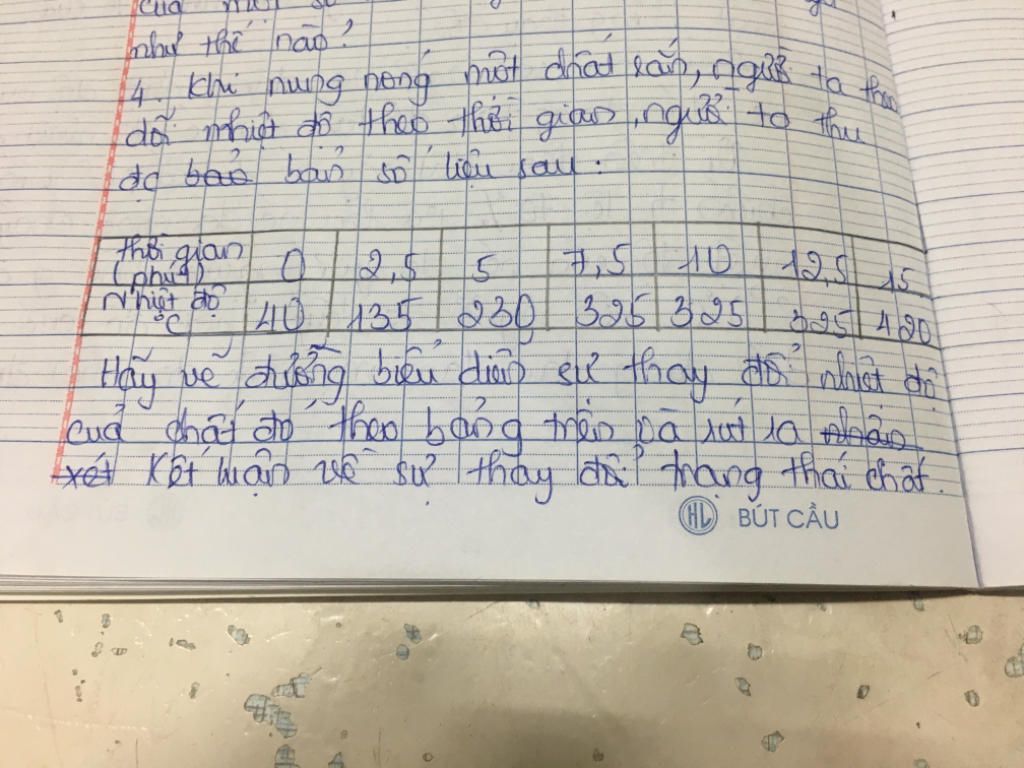 như thế nào?
4. Khi nung nóng một chất rắn, người ta theo
dõi nhiệt độ theo thời gian, người ta thu
đc bảo bản số liệu sau:
thời gian (phút) 0 2,5 5 7,5 10 12,5 15
Nhiệt độ °C 40 135 230 325 325 325 420
Hãy vẽ đường biểu diễn sự thay đổi nhiệt độ
của chất đó theo bảng trên và rút ra nhận
xét kết luận về sự thay đổi trạng thái chất.
HL BÚT CẦU